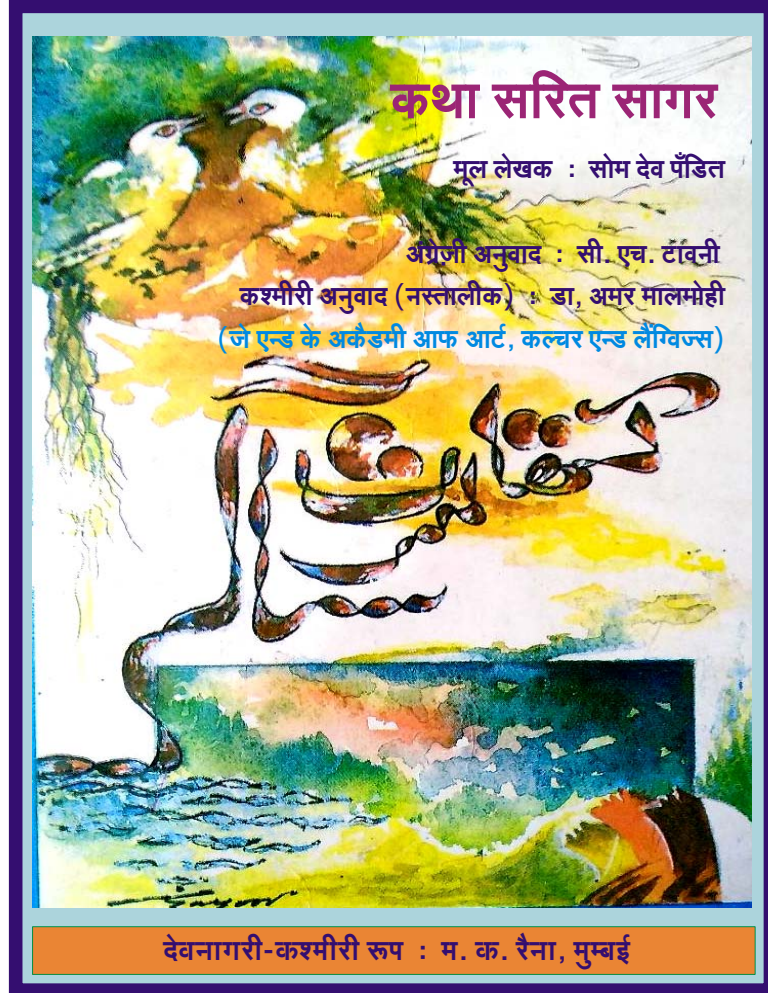 कथा सरित सागर
मूल लेखक : सोम देव पँडित
अंग्रेज़ी अनुवाद : सी. एच. टावनी
कश्मीरी अनुवाद (नस्तालीक) : डा, अमर मालमोही
(जे एन्ड के अकैडमी आफ आर्ट, कल्चर एन्ड लैंग्विज्स)
देवनागरी-कश्मीरी रूप : म. क. रैना, मुम्बई